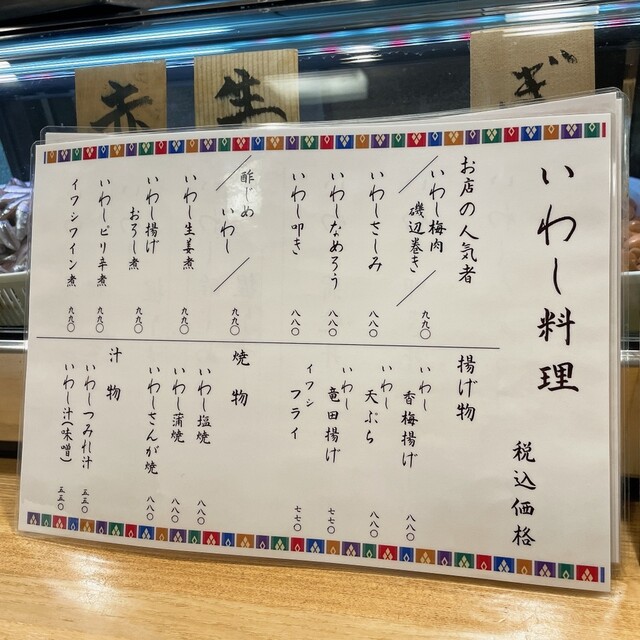 赤
生
ぎ
いわし料理
税込価格
お店の人気者
いわし梅肉
磯辺巻き
九九〇
いわしさしみ
八八〇
いわしなめろう
八八〇
いわし叩き
八八〇
酢じめ
いわし
九九〇
いわし生姜煮
九九〇
いわし揚げ
おろし煮
九九〇
いわしピリ辛煮
九九〇
イワシワイン煮
九九〇
揚げ物
いわし
香梅揚げ
八八〇
いわし
天ぷら
八八〇
いわし
竜田揚げ
七七〇
イワシ
フライ
七七〇
焼物
いわし塩焼
八八〇
いわし蒲焼
八八〇
いわしさんが焼
八八〇
汁物
いわしつみれ汁
五五〇
いわし汁(味噌)
五五〇